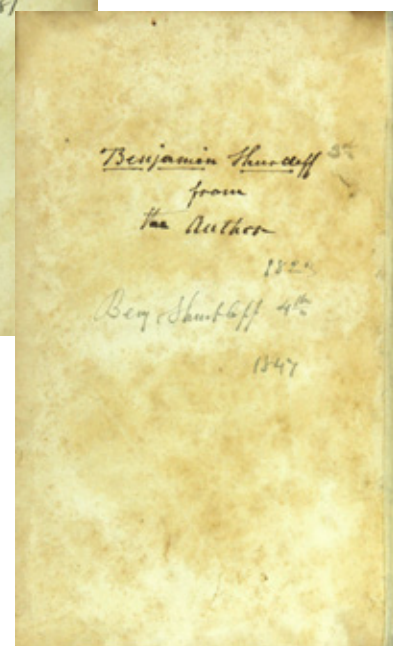 Benjamin Shurcliff 3rd
from
the Author
Benj. Shurtleff 4th